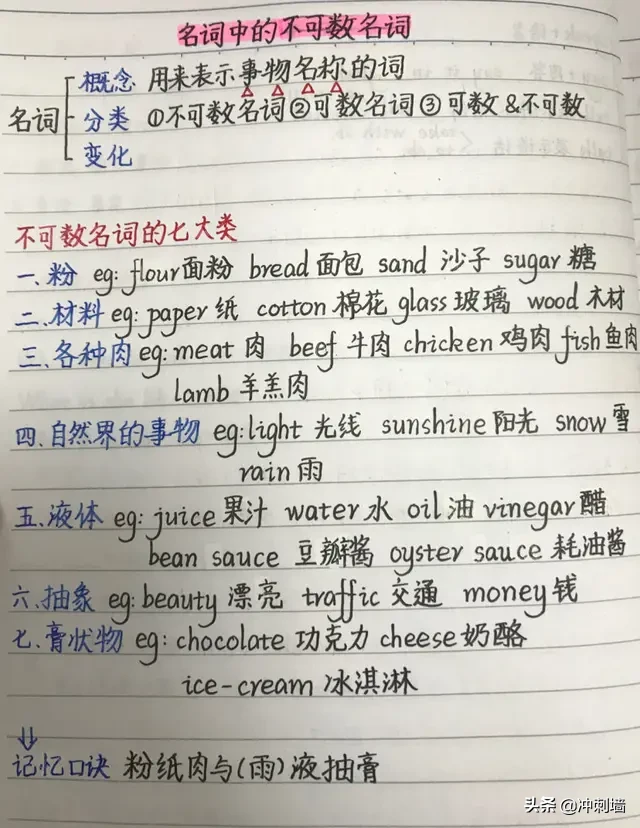 名词中的不可数名词
概念 用来表示事物名称的词
名词 分类 ①不可数名词②可数名词③可数&不可数
变化
不可数名词的七大类
一、粉 eg: flour面粉 bread面包 sand 沙子 sugar 糖
二、材料 eg: paper 纸 cotton 棉花 glass 玻璃 wood 木材
三、各种肉 eg: meat 肉 beef 牛肉 chicken 鸡肉 fish鱼肉
lamb 羊羔肉
四、自然界的事物 eg: light 光线 sunshine 阳光 snow 雪
rain 雨
五、液体 eg: juice 果汁 water 水 oil 油 vinegar 醋
bean sauce 豆瓣酱 oyster sauce 耗油酱
六、抽象 eg: beauty 漂亮 traffic 交通 money 钱
七、膏状物 eg: chocolate 功克力 cheese 奶酪
ice-cream 冰淇淋
记忆口诀 粉纸肉与(雨)液抽膏
头条 @冲刺墙